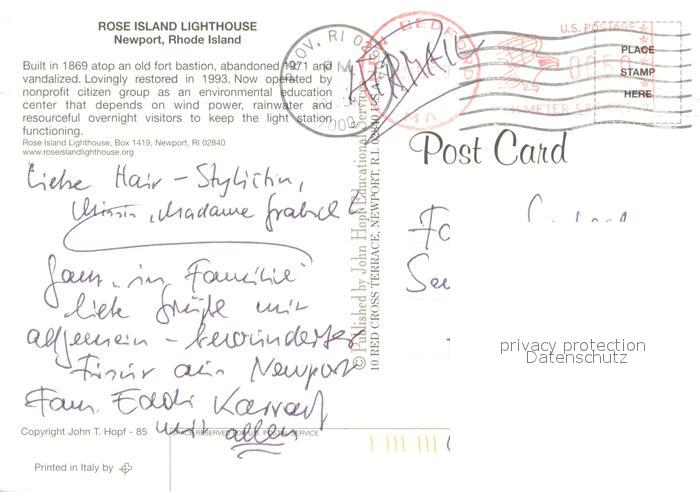 ROSE ISLAND LIGHTHOUSE
Newport, Rhode Island
Built in 1869 atop an old fort bastion, abandoned 1971 and
vandalized. Lovingly restored in 1993. Now operated by
nonprofit citizen group as an environmental education
center that depends on wind power, rainwater and
resourceful overnight visitors to keep the light station
functioning.
Rose Island Lighthouse, Box 1419, Newport, RI 02840
www.roseislandlighthouse.org
Liebe Hair-Stylistin,
Madame
"in Familie"
liebe Grüße mit
allgemein - bewunderter
Frisur aus Newport
Fam. Eddi
mit allen
Copyright John T. Hopf - 85
SPACE RESERVED FOR U.S. POSTAL SERVICE
Printed in Italy by
© Published by John Hopf Educational Services
10 RED CROSS TERRACE, NEWPORT, R.I. 02840 U.S.A.
PROV, RI 029
PM
AIRMAIL
NEW BEDFORD
MA
U.S. POSTAGE
METER
PLACE
STAMP
HERE
Post Card
privacy protection
Datenschutz